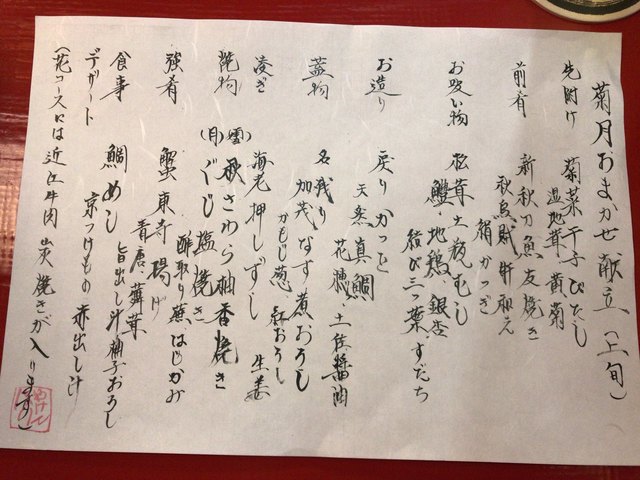 菊月おまかせ献立（上旬）
先附け 菊菜干子びたし
湿地茸 黄菊
前肴 新秋刀魚友焼き
秋烏賊 肝和え
絹かつぎ
お吸い物 松茸土瓶むし
鱧・地鶏・銀杏
結び三つ葉・すだち
お造り 戻りかつを
天然真鯛
花穂・土佐醤油
蓋物 名残り
加茂なす煮おろし
かもじ葱・紅おろし
凌ぎ 海老押しずし 生姜
焼物 （雲） 秋さわら柚香焼き
（月） ぐじ塩焼き
酢取り蓮 はじかみ
強肴 蟹東寺揚げ
青唐 舞茸
食事 鯛めし 旨出し汁 柚子おろし
京つけもの 赤出し汁
デザート
（花コースには近江牛肉炭焼きが入ります）